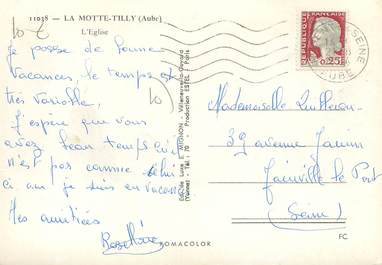 11038 — LA MOTTE-TILLY (Aube)
L'Eglise
10 €
Je passe de bonne
vacances, le temps est
très variable,
J'espère que vous
avez beau temps
n'est pas comme
ci ane je suis en vacances
Mes amitiés
10
Edition Luna MIGNON - Villeneuve-la-Guyard
(Yonne) - Tél : 79 - Production ESTEL - Paris
ROMACOLOR
REPUBLIQUE FRANÇAISE
0,25
SEINE
AUBE
Mademoiselle
39 avenue
Joinville le Pont
(Seine)
FC